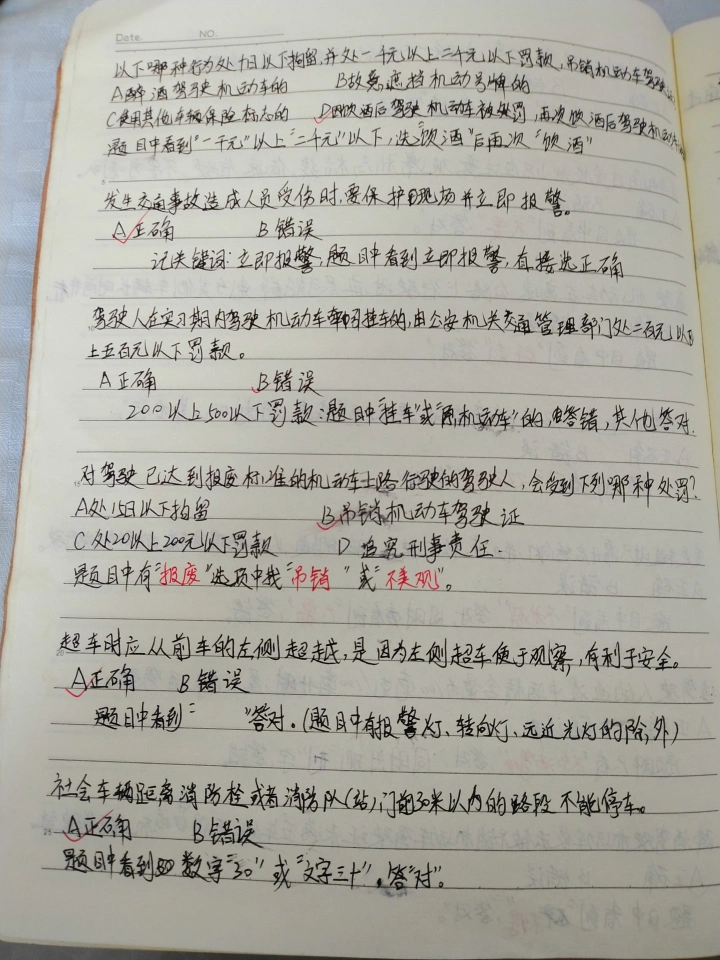 Date.    NO.
以下哪种行为处十日以下拘留,并处一千元以上二千元以下罚款,吊销机动车驾驶证
A醉酒驾驶机动车的    B故意遮挡机动号牌的
C使用其他车辆保险标志的    D因饮酒后驾驶机动车被处罚,再次饮酒后驾驶机动车
题目中看到"一千元"以上"二千元"以下,选"饮酒"后再次"饮酒"
发生交通事故造成人员受伤时,要保护现场并立即报警。
A正确    B错误
记关键词:立即报警,题目中看到立即报警,直接选正确
驾驶人在实习期内驾驶机动车牵引挂车的,由公安机关交通管理部门处二百元以
上五百元以下罚款。
A正确    B错误
200以上500以下罚款:题目中"挂车"或"两机动车"的,答错,其他答对.
对驾驶已达到报废标准的机动车上路行驶的驾驶人,会受到下列哪种处罚?
A处15日以下拘留    B吊销机动车驾驶证
C处20以上200元以下罚款    D 追究刑事责任.
题目中有"报废"选项中找"吊销"或"不美观"。
超车时应从前车的左侧超越,是因为左侧超车便于观察,有利于安全。
A正确    B错误
题目中看到"    "答对.(题目中有报警灯、转向灯、远近光灯的除外)
社会车辆距离消防栓或者消防队(站)门前30米以内的路段不能停车。
A正确    B错误
题目中看到数字"30"或"文字三十",答"对"。